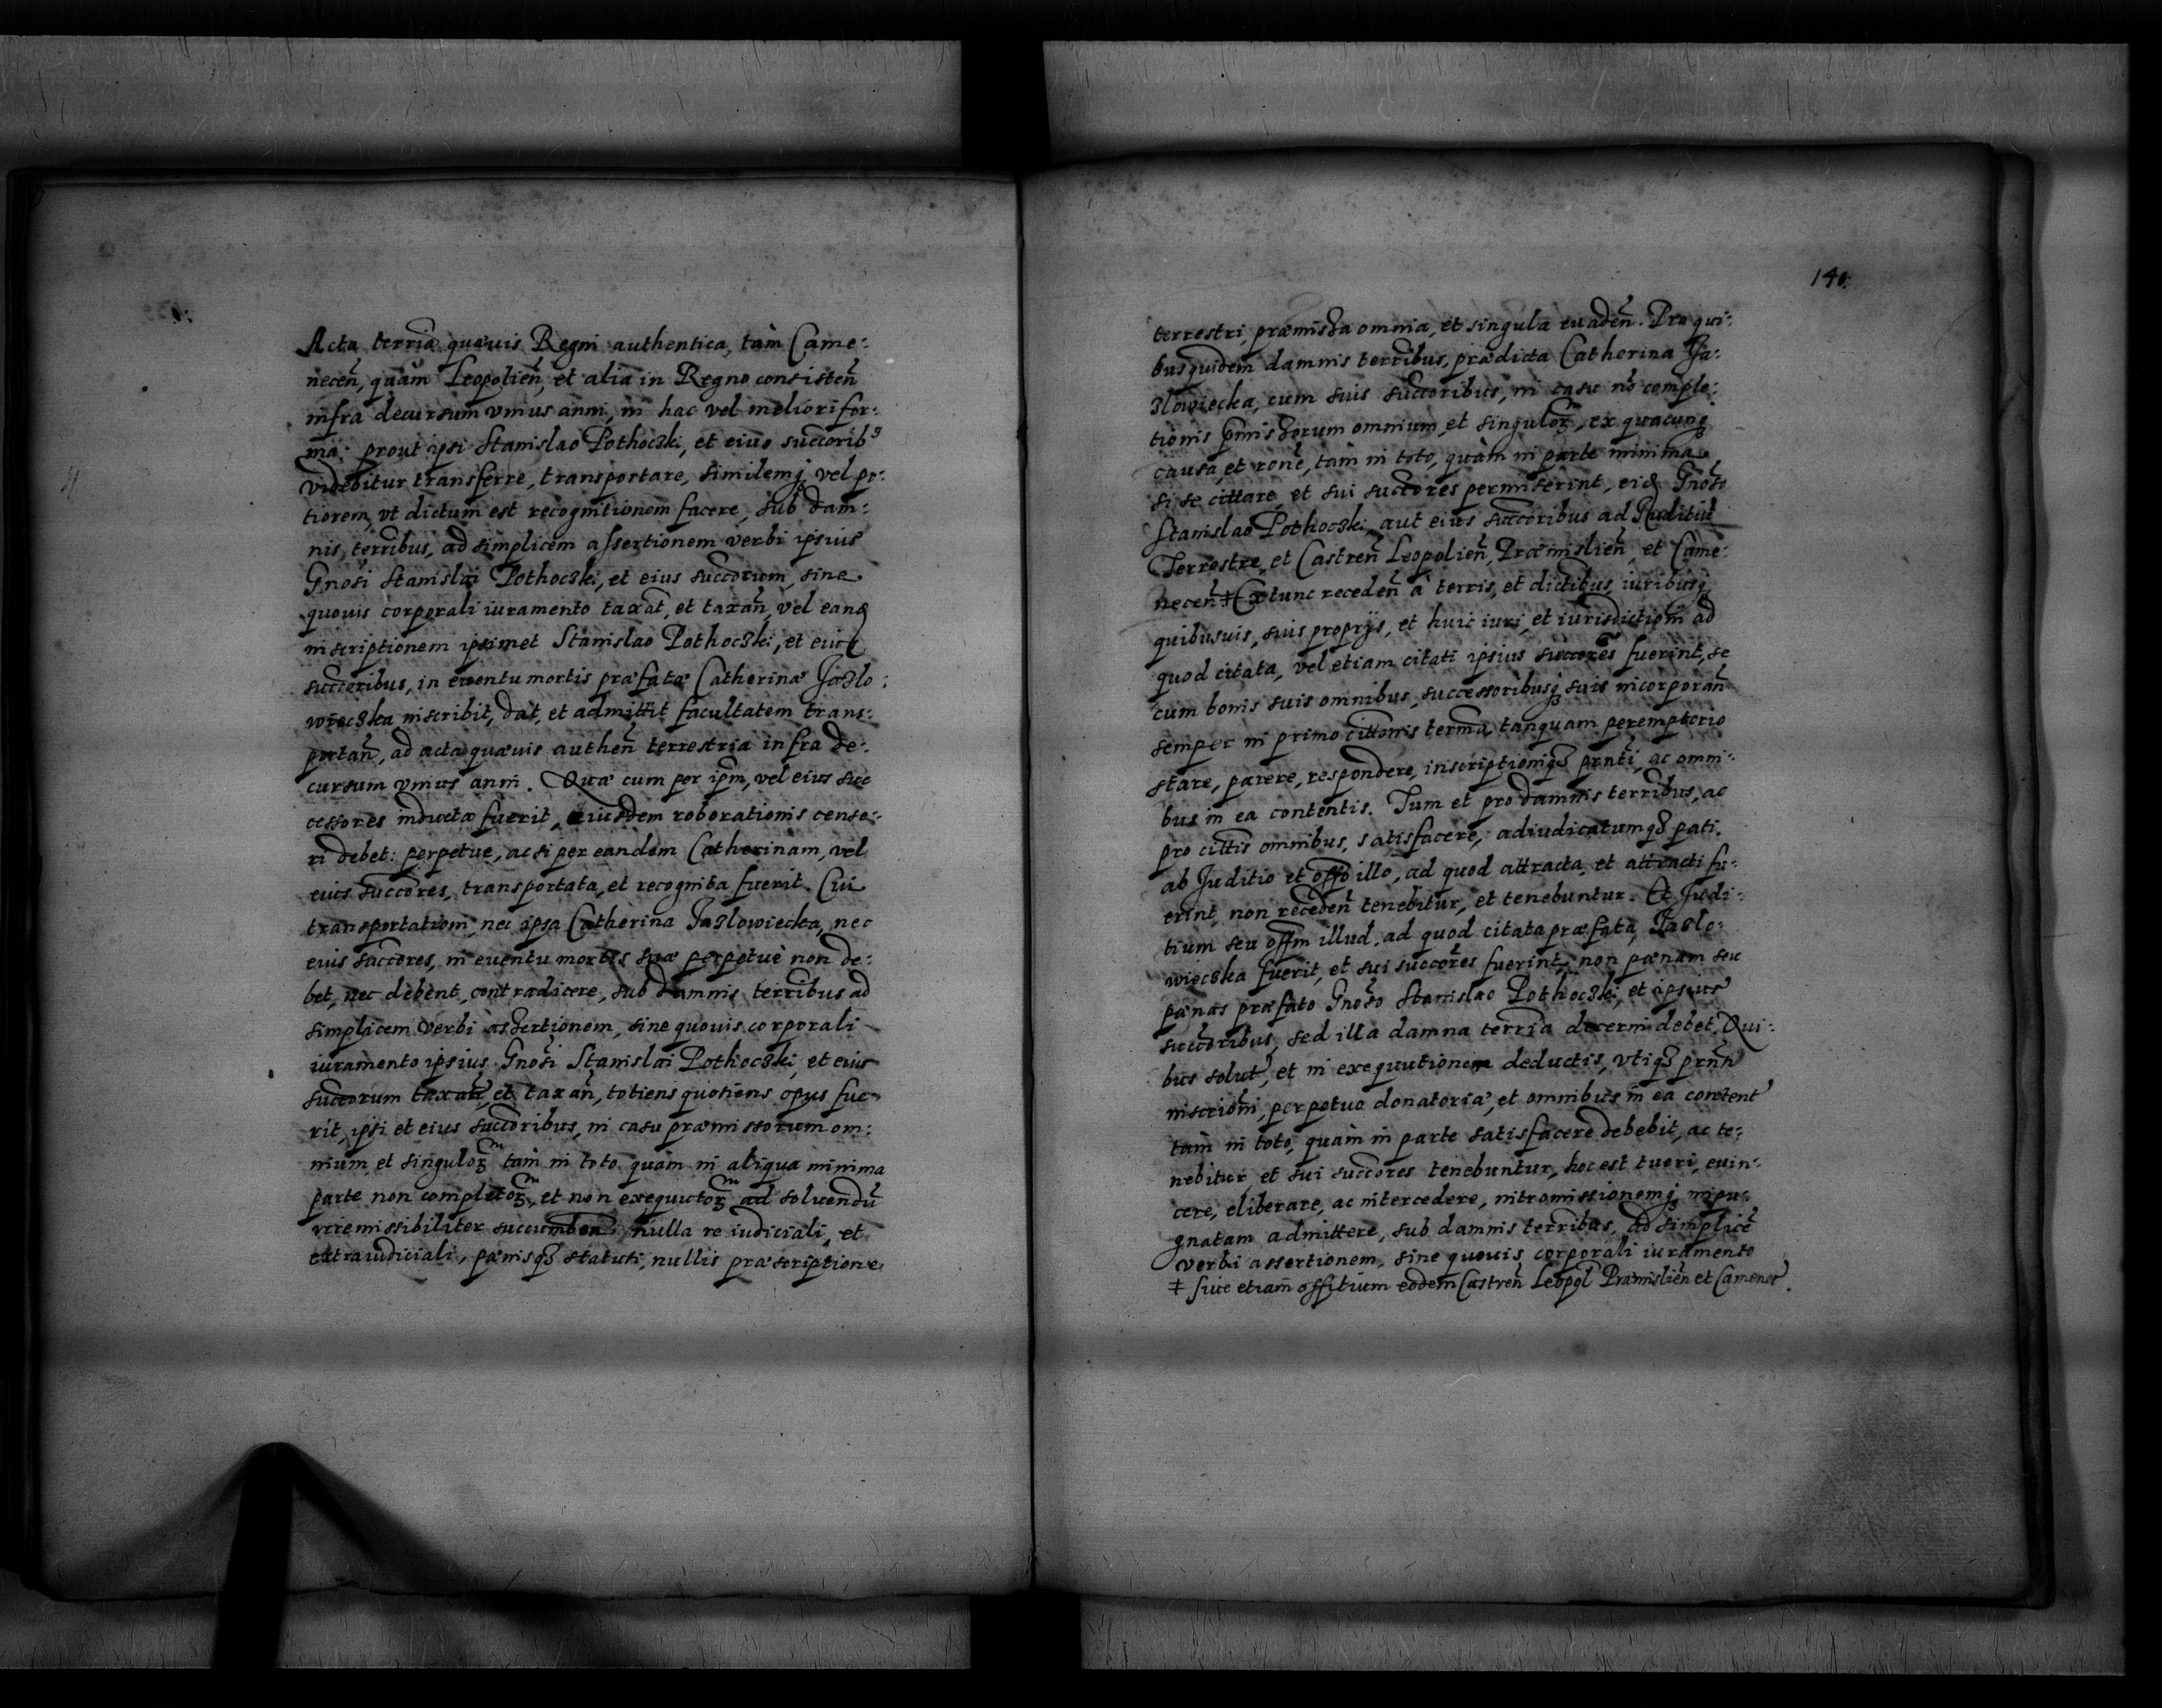 Acta terria quævis Regni authentica, tàm Came:
necen̄, quàm Leopolien̄, et alia in Regno consisten̄
infra decursum vnius anni, in hac vel meliori for:
ma: prout ipsi Stanislao Pothocʒki, et eius succorib⁹
videbitur transferre, transportare, similemq́ʒ vel po:
tiorem, vt dictum est recognitionem facere, sub dam:
nis, terribus, ad simplicem assertionem verbi ipsius
Gnosi Stanislai Pothocʒki, et eius succorum, sine
quovis corporali iuramento taxat̄, et taxan̄, vel eand
inscriptionem ipsimet Stanislao Pothocʒki, et eius
succoribus, in eventu mortis præfatæ Catherinæ Jaʒlo:
wiecʒka inscribit, dat, et admittit facultatem trans:
portan̄, ad acta quævis authen̄ terrestria infra de:
cursum vnius anni. Quæ cum per ipm̄, vel eius suc
cessores inducta fuerit, eiusdem roborationis cense:
ri debet: perpetue, ac si per eandem Catherinam, vel
eius succores, transportata, et recognita fuerit. Cui
transportationi, nec ipsa Catherina Jaʒlowiecka, nec
eius succores, in eventu mortis suæ perpetuè non de:
bet, nec debent, contradicere, sub damnis terribus ad
simplicem verbi assertionem, sine quovis corporali
iuramento ipsius Gnosi Stanislai Pothocʒki, et eius
succorum taxat̄, et taxan̄, totiens quotiens opus fue
rit, ipsi et eius succoribus, in casu præmissorum om:
nium, et singuloꝝᵐ tàm in toto quàm in aliqua minima
parte non completoꝝᵐ, et non exequutoꝝᵐ ad solvendū
irremissibiliter nulla re iudiciali, et
extraiudiciali, pænisqʒ statuti, nullis præscriptione
140.
terrestri, præmissa omnia, et singula evaden̄. Pro qui:
bus quidem damnis terribus, prædicta Catherina Ja:
ʒlowiecka, cum suis succoribus, in casu nō comple:
tionis pm̄issorum omnium, et singuloꝝ, ex quacunqʒ
causa, et ron̄e, tàm in toto, quàm in parte minima
si se cittare, et sui succores permiserint, eid Gnoso
Stanislao Pothocʒki, aut eius succoribus ad Juditiū
Terrestre, et Castren̄ Leopolien̄, Præmislien̄, et Came:
necen̄ ‡ Ex tunc receden̄ à terris, et dictibus, iuribusqʒ
quibusvis, suis proprijs, et huic iuri, et iurisdictioni ad
quod citata, vel etiam citati ipsius succores fuerint, se
cum bonis suis omnibus, successoribusqʒ suis incorporan̄
semper in primo cittonis termo, tanquam peremptorio
stare, parere, respondere, inscriptioniqʒ pn̄ti, ac omni:
bus in ea contentis. Tum et pro damnis terribus, ac
pro cittis omnibus, satisfacere, adiudicatumqʒ pati.
ab Juditio et offo illo, ad quod attracta, et attracti fu:
erint, non receden̄ tenebitur, et tenebuntur. Et Judi:
tium seu offm illud, ad quod citata præfata, Jaʒlo:
wiecʒka fuerit, et sui succores fuerint, non pænam seu
pænas præfato Gnoso Stanislao Pothocʒki, et ipsius
succoribus, sed illa damna terria decerni debet. Qui:
bus solut̄, et in exequutionem deductis, vtiqʒ pn̄ti
inscrioni, perpetuo donatoriæ, et omnibus in ea content̄
tàm in toto, quàm in parte satisfacere debebit, ac te:
nebitur, et sui succores tenebuntur, hoc est tueri, evin:
cere, eliberare, ac intercedere, intromissionemqʒ inpu:
gnatam admittere, sub damnis terribus, ad simplicē
verbi assertionem, sine quovis corporali iuramento
‡ sive etiam offitium eodem Castren̄ Leopol Præmislien̄ et Camenec̄.